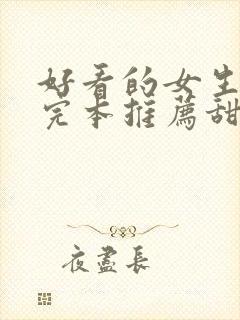 好看的女生
完本推薦甜
夜盡長